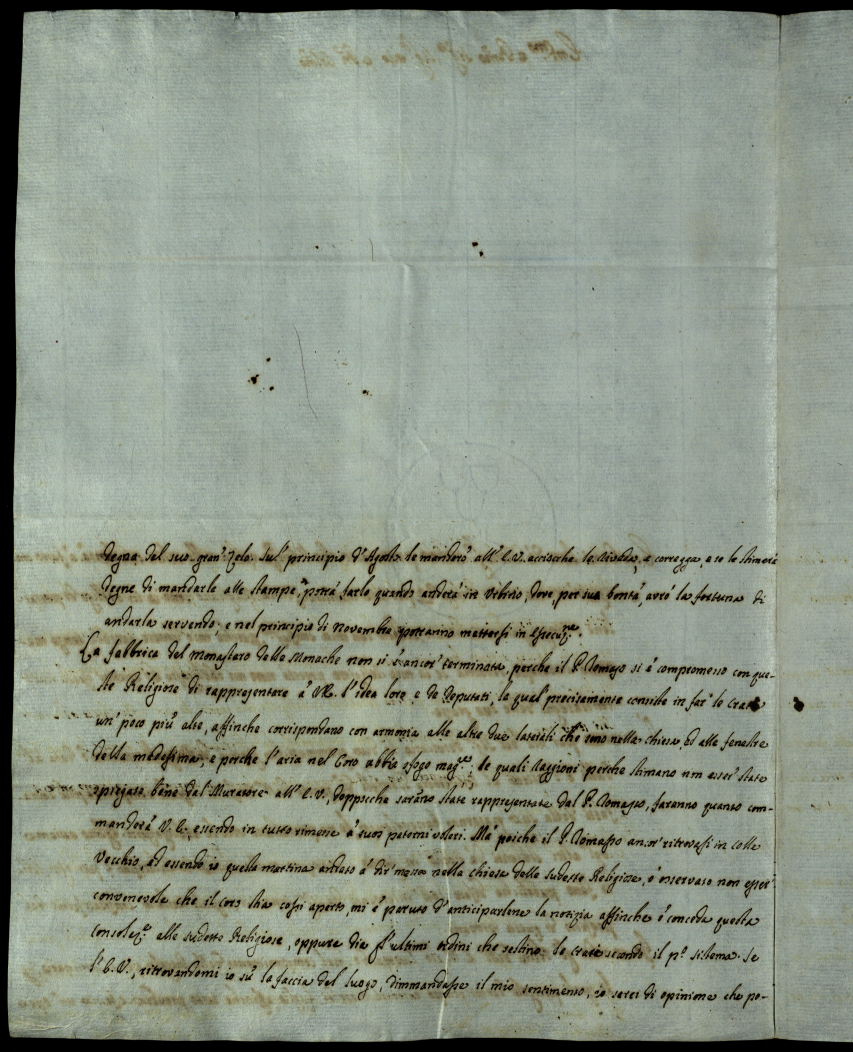 degna del suo gran Zelo. Sul' principio d'Agosto le manderò all' E.V. acciocche le riveda, e corregga, e se le stimerà
degne di mandarle alle stampe, potrà farlo quando anderà in Urbino, dove, per sua bontà, avrò la fortuna di
andarla servendo; e nel principio di Novembre potranno mettersi in esecuz.ne.
La fabbrica del monastero delle Monache non si è ancor' terminata, perche il P. Tomasso si è compromesso con que-
ste Religiose di rappresentare à V.E. l'idea loro, e de Deputati, la qual' precisamente consiste in far' le Crate
un' poco più alte, affinche corrispondano con armonia alle altre due laterali che sono nella chiesa, ed alle fenestre
della medesima, e perche l'aria nel Coro abbia sfogo mag.re; le quali raggioni perche stimano non esser' state
spiegate bene dal Muratore all' E.V., doppoche saranno state rappresentate dal P. Tomasso, faranno quanto com-
manderà V.E. essendo in tutto rimesse à suoi paterni voleri. Mà poiche il P. Tomasso ancor' ritrovasi in Colle
Vecchio, ed essendo io questa mattina andato à dir' messa nella chiesa delle sudette Religiose, e osservato non esser'
convenevole che il coro stia così aperto, mi è paruto d'anticiparlene la notizia affinche ò conceda questa
consolaz.ne alle sudette Religiose, oppure dia gl'ultimi ordini che restino le crate secondo il p.o sistema. Se
l'E.V., ritrovandomi io sù la faccia del luogo, dimmandasse il mio sentimento, io sarei di opinione che po-